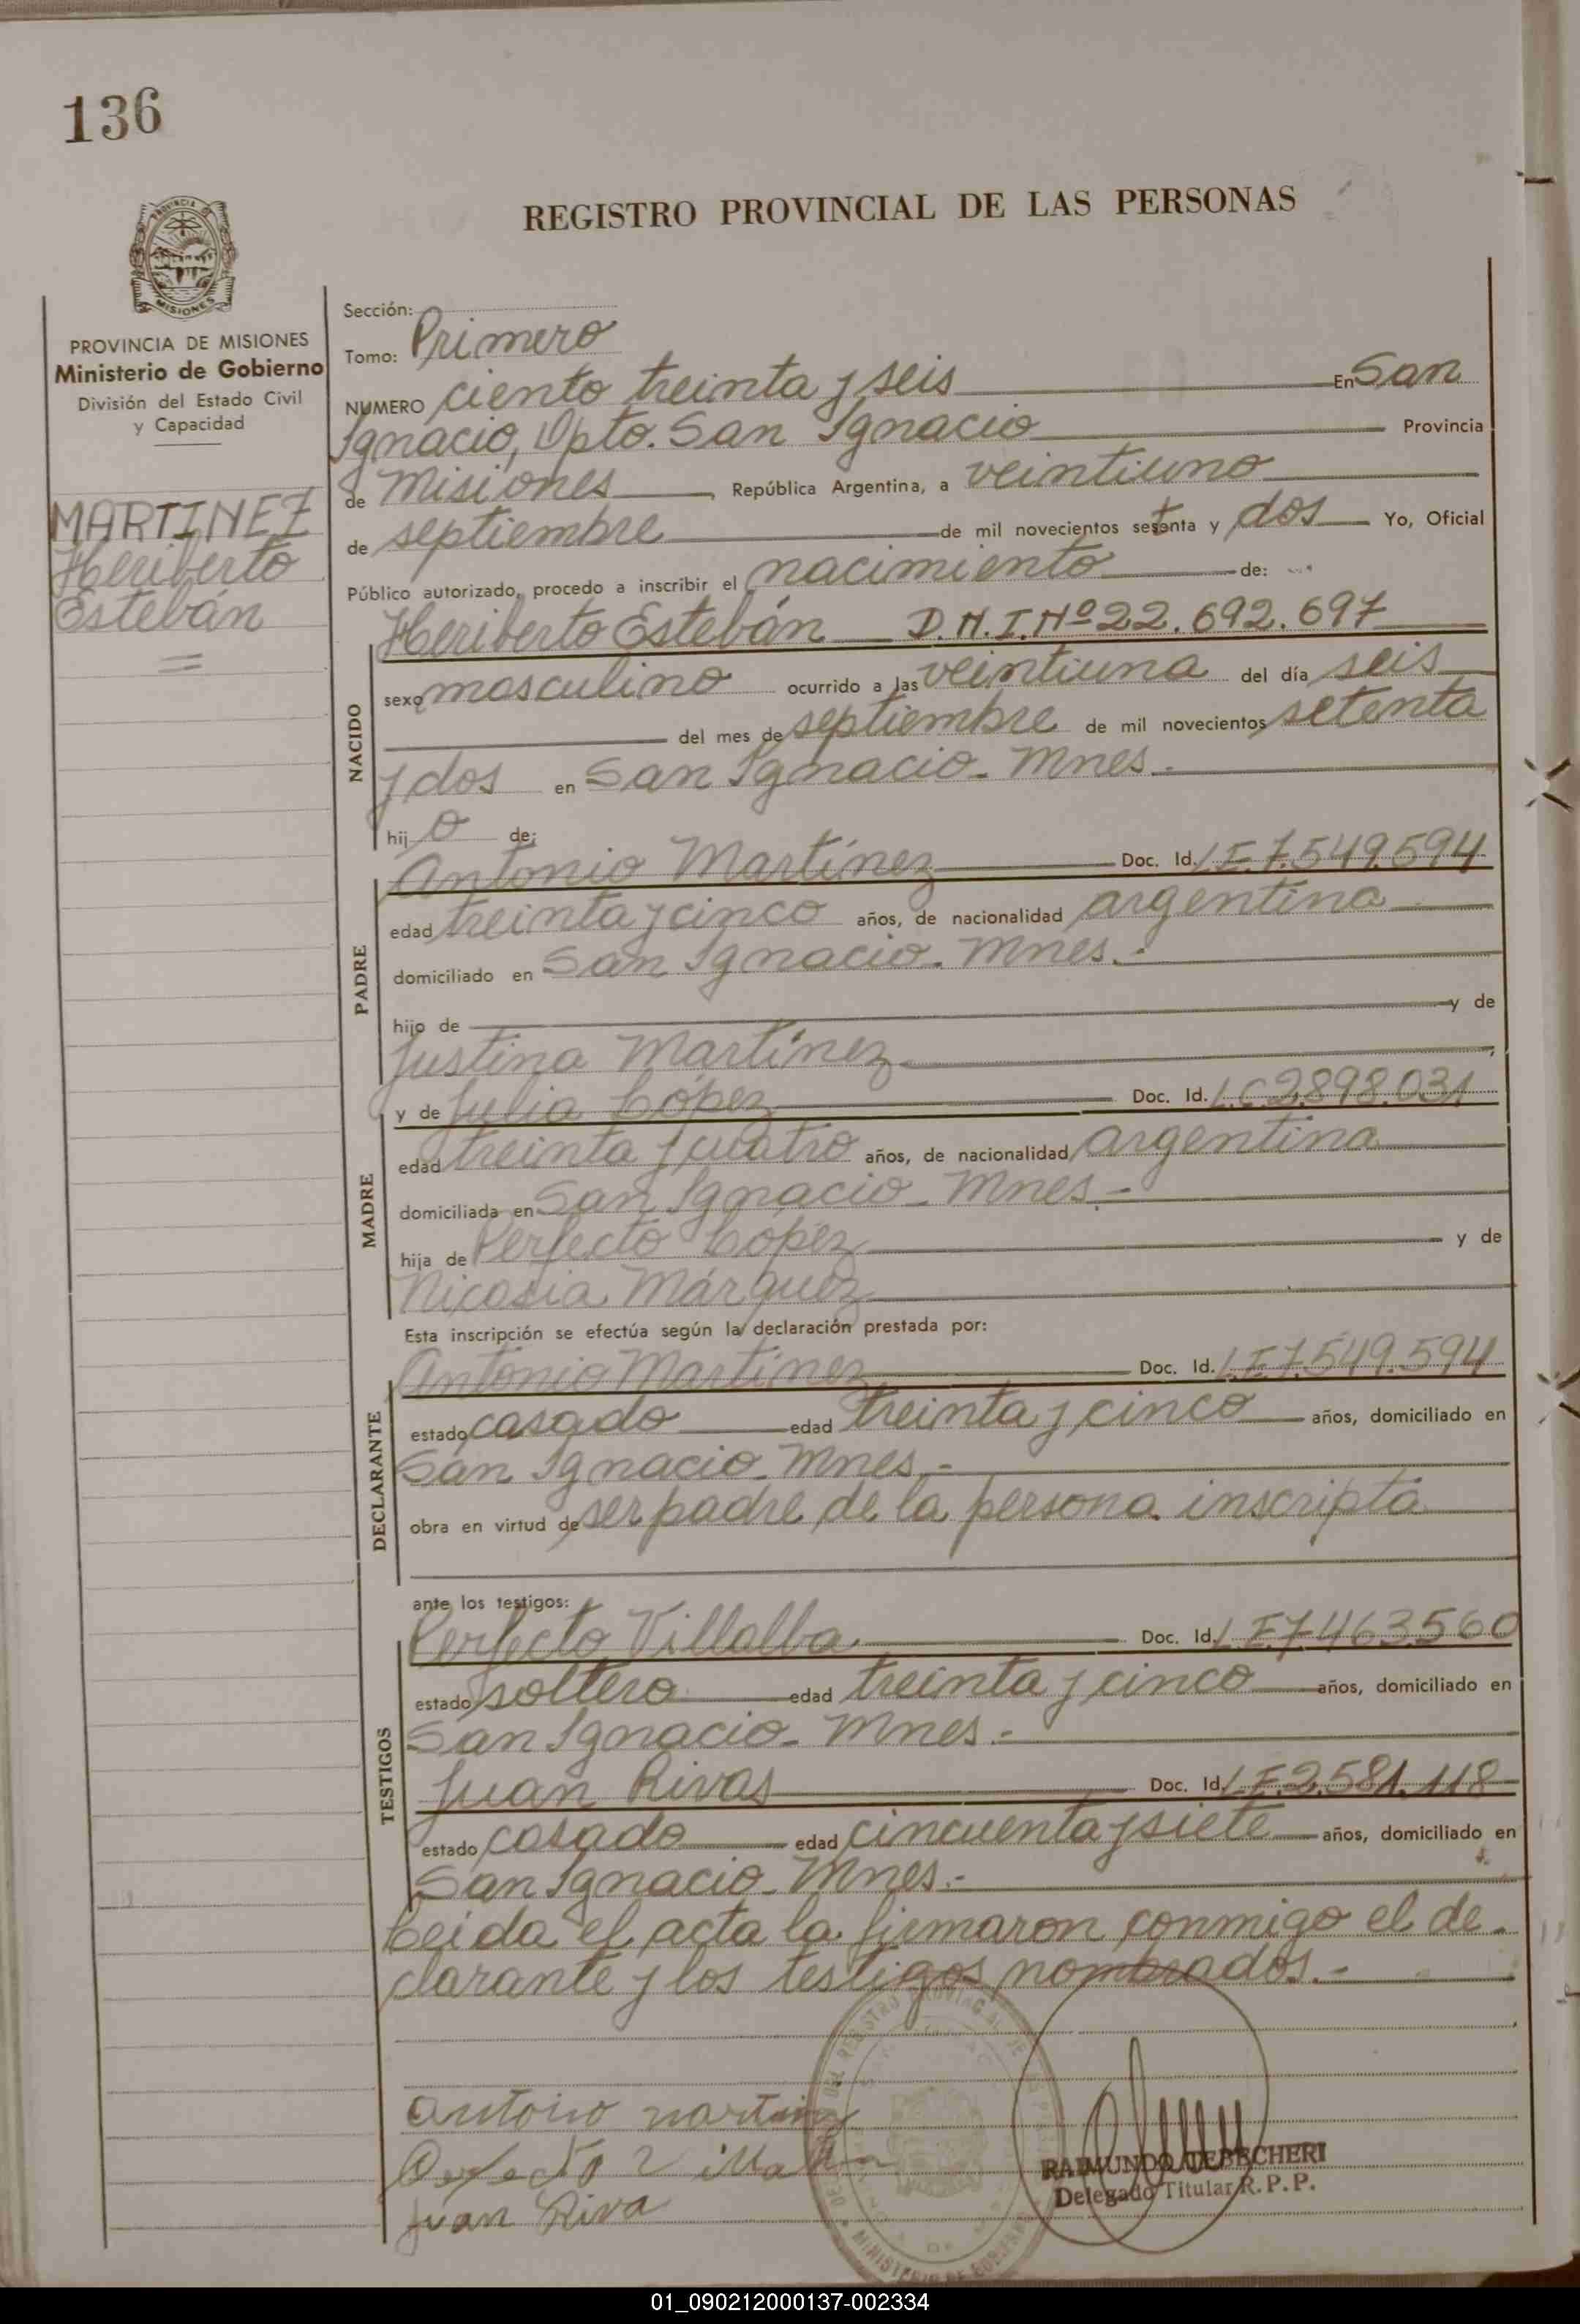 136
REGISTRO PROVINCIAL DE LAS PERSONAS
PROVINCIA DE MISIONES
Ministerio de Gobierno
División del Estado Civil
y Capacidad
MARTINEZ
Heriberto
Estebán
=
Sección:
Tomo: Primero
NUMERO ciento treinta y seis En San
Ignacio, Dpto. San Ignacio Provincia
de Misiones, República Argentina, a veintiuno
de septiembre de mil novecientos setenta y dos Yo, Oficial
Público autorizado, procedo a inscribir el nacimiento de:
Heriberto Estebán D.N.I.Nº 22.692.697
NACIDO
sexo masculino ocurrido a las veintiuna del día seis
del mes de septiembre de mil novecientos setenta
y dos en San Ignacio. Mnes.-
hij o de:
Antonio Martínez Doc. Id. L.E. 7.549.594
PADRE
edad treinta y cinco años, de nacionalidad argentina
domiciliado en San Ignacio. Mnes.-
hijo de y de
Justina Martínez
y de Julia López Doc. Id. L.C. 2.898.031
MADRE
edad treinta y cuatro años, de nacionalidad argentina
domiciliada en San Ignacio. Mnes.-
hija de Perfecto López y de
Nicasia Márquez
Esta inscripción se efectúa según la declaración prestada por:
Antonio Martínez Doc. Id. L.E. 7.549.594
DECLARANTE
estado casado edad treinta y cinco años, domiciliado en
San Ignacio. Mnes.-
obra en virtud de ser padre de la persona inscripta
ante los testigos:
Perfecto Villalba Doc. Id. L.E. 7.463.560
TESTIGOS
estado soltero edad treinta y cinco años, domiciliado en
San Ignacio. Mnes.-
Juan Rivas Doc. Id. L.E. 2.581.118
estado casado edad cincuenta y siete años, domiciliado en
San Ignacio. Mnes.-
Leida el acta la firmaron conmigo el de-
clarante y los testigos nombrados.-
antonio martinez
Juan Riva
RAIMUNDO TERECHERI
Delegado Titular R. P. P.
01_090212000137-002334